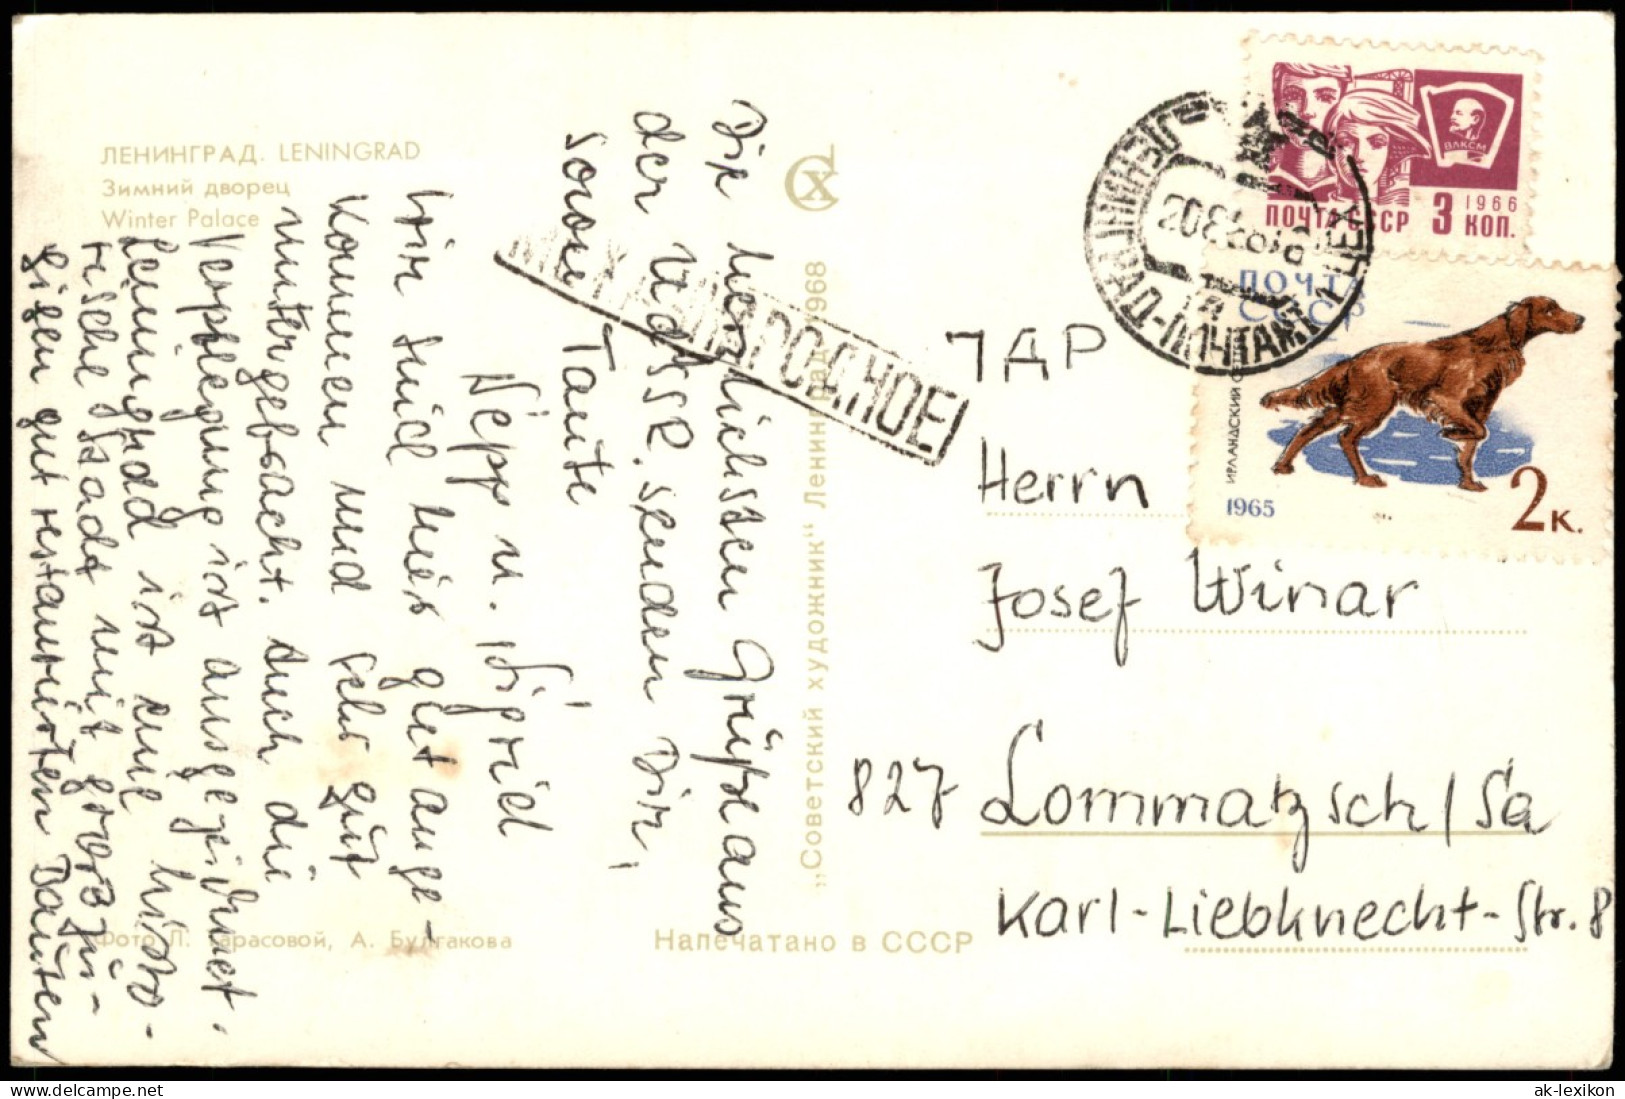 ЛЕНИНГРАД. LENINGRAD
Зимний дворец
Winter Palace
Die herzlichsten Grüße aus
der UdSSR. senden Dir,
sowie Tante
Sepp u. Sigrid
Wir sind hier gut ange-
kommen und sehr gut
untergebracht. Auch die
Verpflegung ist ausgezeichnet.
Leningrad ist eine histo-
rische Stadt mit großzü-
gigen gut restaurierten Bauten
Фото Л. Тарасовой, А. Булгакова
„Советский художник“ Ленинград 1968
Напечатано в СССР
МЕЖДУНАРОДНОЕ
ЛЕНИНГРАД-ПОЧТАМТ
ВЛКСМ
1966
ПОЧТА СССР 3 КОП.
ПОЧТА
СССР
ИРЛАНДСКИЙ
1965
2 К.
ГДР
Herrn
Josef Winar
827 Lommatzsch/Sa
Karl-Liebknecht-Str. 8
ak-lexikon